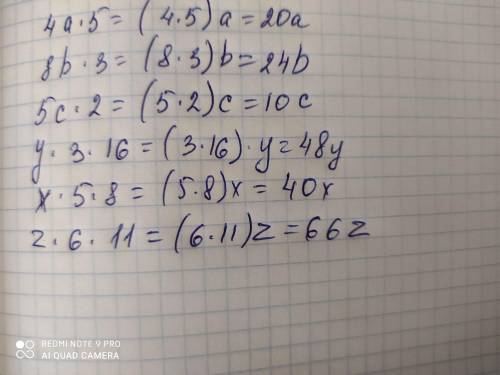 4a·5=(4·5)a=20a
8b·3=(8·3)b=24b
5c·2=(5·2)c=10c
y·3·16=(3·16)·y=48y
x·5·8=(5·8)x=40x
z·6·11=(6·11)z=66z
REDMI NOTE 9 PRO
AI QUAD CAMERA